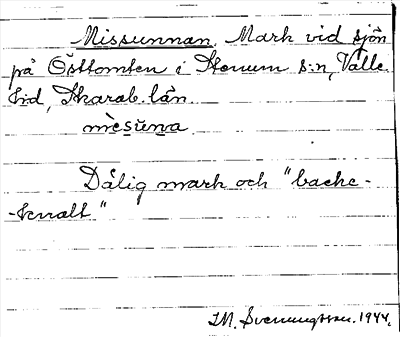 Nissunnan. Mark vid sjön
på Östtomten i Stenum s:n, Valle
hd, Skarab. län.
mèsu̇na
Dålig mark och "backe-
-knalt"
J.M. Svenungsson. 1944.